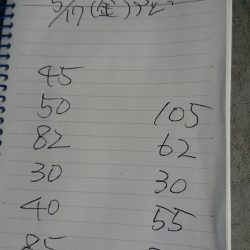 5/17(金)
45
50
82
30
40
85
105
62
30
55